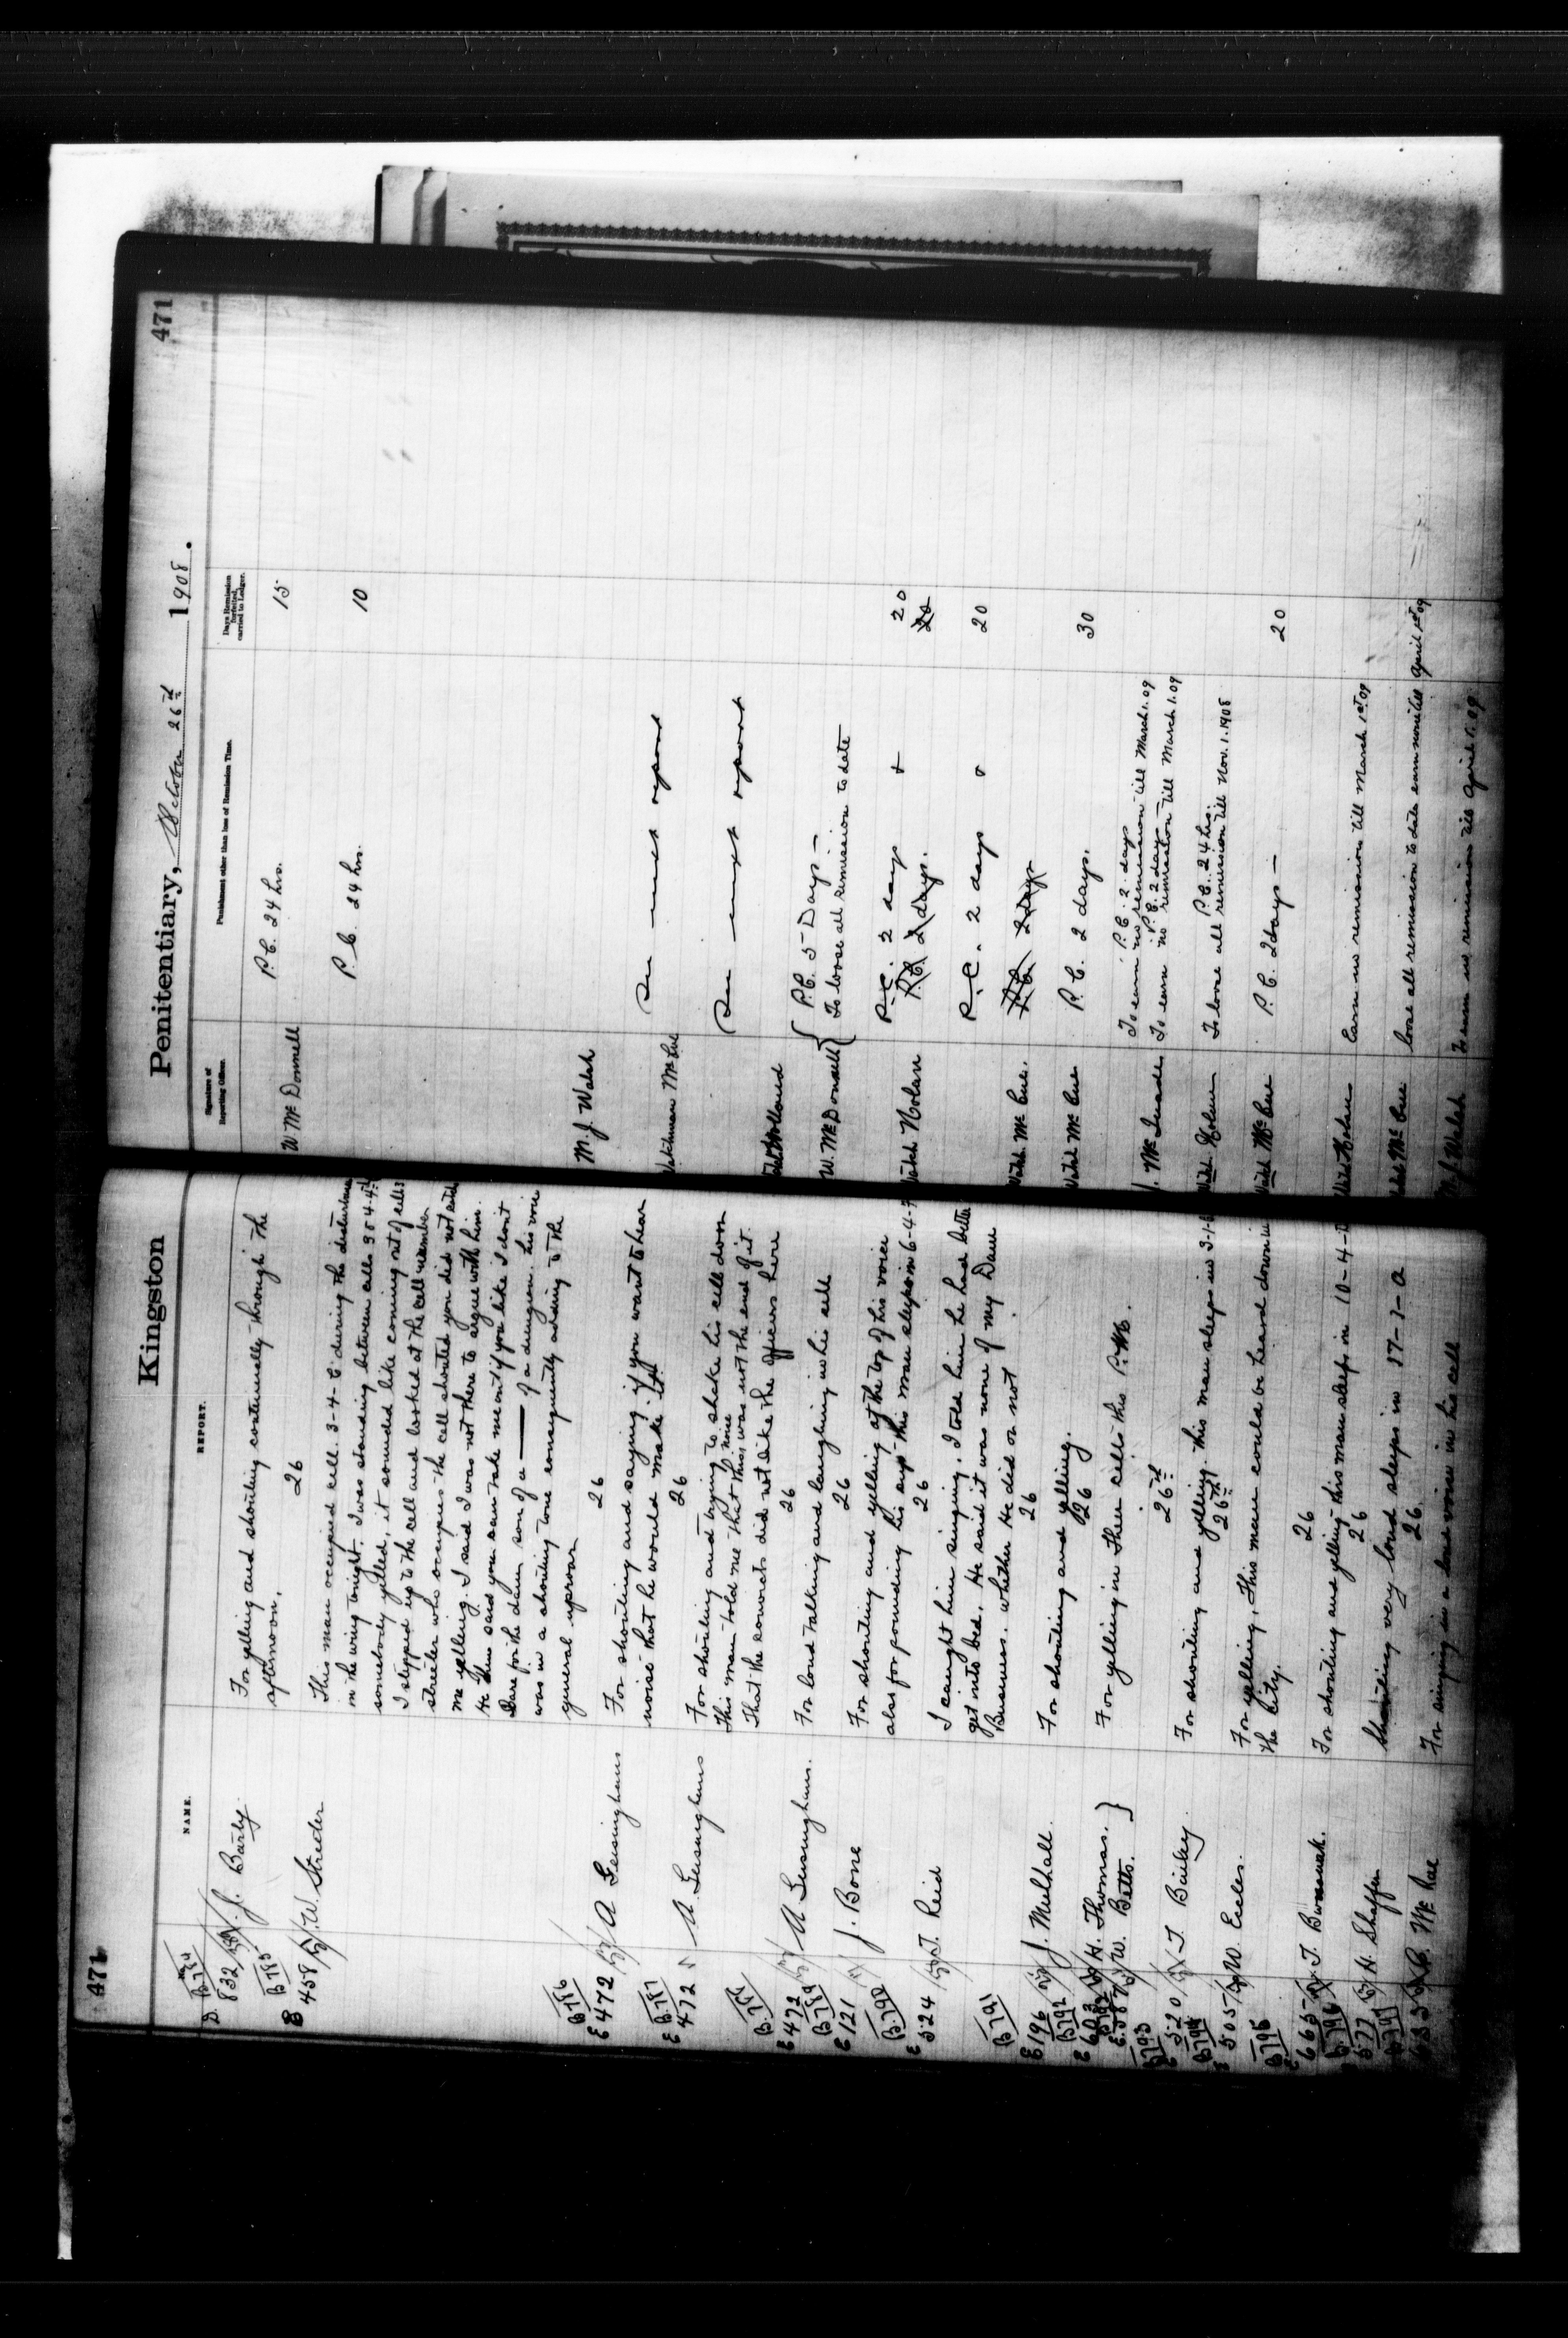 471
Kingston
NAME.
REPORT.
D
B.784
832 J. Barty
For yelling and shouting continually through the
afternoon.
26
B785
E
458 W. Streeter
This man occupied cell 3-4-C during the disturbance
in the wing tonight. I was standing between cells 3 & 4-4th
somebody yelled, it sounded like coming out of cells
I stepped up to the cell and looked at the cell number
streeter who occupies the cell shouted you did not catch
me yelling. I said I was not there to argue with him.
He then said you can take me out if you like I don't
Dare for the damn son of a —— of a dungeon. his voice
was in a shouting tone consequently adding to the
general uproar
26
B786
E 472 A Lensinghams
For shouting and saying if you want to hear
noise that he would make it
26
B.787
E 472 A. Lensinghams
For shouting and trying to shake his cell down
This man told me that this noise was not the end of it.
That the convicts did not like the officers here
26
B.788
E 472 A Lensinghams.
For loud talking and laughing in his cell
26
B789
E 121 J. Bone
For shouting and yelling at the top of his voice
also for pounding his cup this man sleeps in 6-4-F
26
B.790
E 524 T. Reid
I caught him singing. I told him he had better
get into bed. He said it was none of my Damn
Business. whether He did or not
26
B791
E 196 J. Mulhall.
For shouting and yelling.
26
B792
E 603 H. Thomas.
E.587 W. Betts.
For yelling in their cells this P.M.
26th
B793
E 520 T. Bailey.
For shouting and yelling. this man sleeps in 3-1-
26th
B794
E 505 W. Eccles.
For yelling, this man could be heard down in
the City.
26
B795
E 665 T.
For shouting and yelling this man sleeps in 10-4-D
26
B.796
577 H. Shaffer
Shouting very loud sleeps in 17-1-A
26
B797
McRae
For singing in a loud voice in his cell
Penitentiary, October 26th 1908.
471
Signature of
Reporting Officer.
Punishment other than loss of Remission Time.
Days Remission
forfeited,
carried to Ledger.
W McDonnell
P.C. 24 hrs.
15
P.C. 24 hrs.
10
M. J. Walsh
See next report
Watchman McCue
See next report
Holland
W. McDonnell
P.C. 5 Days —
To loose all remission to date
Watch Nolan
P.C. 2 days
20
P.C. 2 days.
20
P.C. 2 days
20
Watch McCue.
P.C. 2 days
Watch McCue
P.C. 2 days.
30
J. McQuade
P.C. 2 days
To earn no remission till March 1.09
P.C. 2 days
To earn no remission till March 1.09
Watch Nolan
P.C. 24 hrs.
To loose all remission till Nov. 1. 1908
Watch McCue
P.C. 2 days —
20
Watch Nolan
Earn no remission till March 1st 09
Watch McCue
loose all remission to date earn none till April 1st 09
M. J. Walsh
To earn no remission till April 1. 09